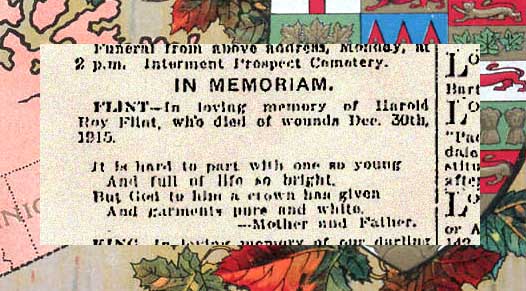 Funeral from above address, Monday, at
2 p.m. Interment Prospect Cemetery.
IN MEMORIAM.
FLINT—In loving memory of Harold
Roy Flint, who died of wounds Dec. 30th,
1915.
It is hard to part with one so young
And full of life so bright,
But God to him a crown has given
And garments pure and white.
—Mother and Father.
KING—In loving memory of our darling
Lo
Bart
Lo
"Pac
dale
situ
afte
Lo
or A
142
NIC